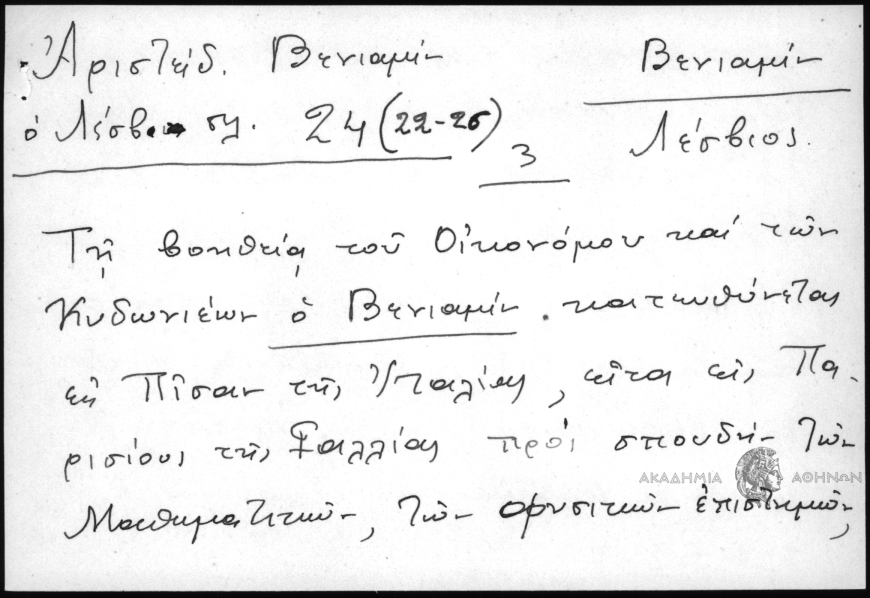 Ἀριστείδ. Βενιαμίν
ὁ Λέσβιος σημ. 24 (22-26)
3
Βενιαμίν
Λέσβιος.
Τῇ βοηθείᾳ τοῦ Οἰκονόμου καί τῶν
Κυδωνιέων ὁ Βενιαμίν κατευθύνεται
εἰς Πῖσαν τῆς Ἰταλίας, εἶτα εἰς Πα-
ρισίους τῆς Γαλλίας πρός σπουδήν τῶν
Μαθηματικῶν, τῶν φυσικῶν ἐπιστημῶν,
ΑΚΑΔΗΜΙΑ ΑΘΗΝΩΝ